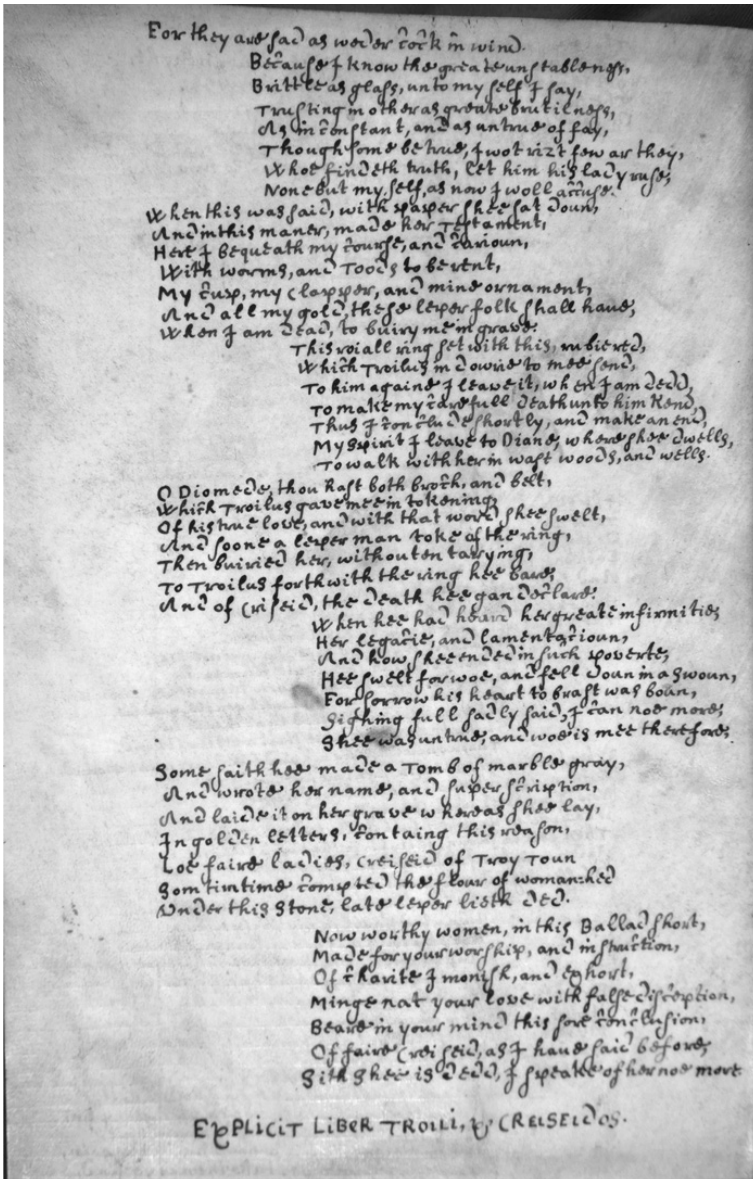 For they are sad as weder cock in wind.
Because I know the greate unstableness,
Brittle as glass, unto my self I say,
Trusting in other as greate brutilness,
As inconstant, and as untrue of fay,
Though some be true, I wot rizt few ar they,
Whoe findeth truth, let him his lady ruse,
None but my self, as now I woll accuse.
When this was said, with paper shee sat doun,
And in this maner, made her Testament,
Here I bequeath my course, and carioun,
With worms, and Toods to be rent,
My cup, my clapper, and mine ornament,
And all my gold, these leper folk shall have,
When I am dead, to buiry me in grave.
This roiall ring set with this, rubie red,
Which Troilus in dowrie to mee send,
To him againe I leave it, when I am dedd,
To make my carefull death unto him kend,
Thus I conclude shortly, and make an end,
My spirit I leave to Diane, where shee dwells,
To walk with her in wast woods, and wells.
O Diomede, thou hast both broch, and belt,
Which Troilus gave mee in tokening,
Of his true love, and with that word shee swelt,
And soone a leper man toke of the ring,
Then buiried her, withouten tarrying,
To Troilus forthwith the ring hee bare,
And of Criseid, the death hee gan declare.
When hee had heard her greate infirmitie,
Her legacie, and lamentacioun,
And how shee ended in such poverte,
Hee swelt for woe, and fell doun in a swoun,
For sorrow his heart to brast was boun,
Sighing full sadly said, I can noe more,
Shee was untrue, and woe is mee therefore.
Some saith hee made a Tomb of marble gray,
And wrote her name, and superscription,
And laide it on her grave whereas shee lay,
In golden letters, containg this reason,
Loe faire ladies, Creiseid of Troy Toun
Somtimtime compted the flour of woman=hed
Under this Stone, late leper lieth ded.
Now worthy women, in this Ballad short,
Made for your worship, and instruction,
Of charite I monish, and exhort,
Minge nat your love with false disception,
Beare in your mind this sore conclusion,
Of faire Creiseid, as I have said before,
Sith Shee is dedd, I speake of her noe more
EXPLICIT LIBER TROILI, & CREISEIDOS.